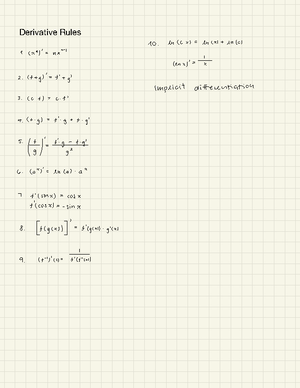 Derivative Rules
1. (xⁿ)' = nxⁿ⁻¹
2. (f+g)' = f' + g'
3. (c f) = c · f'
4. (f·g) = f' · g + f · g'
5. (f/g)' = (f'·g − f·g')/g²
6. (aˣ)' = ln(a) · aˣ
7. f'(sinx) = cosx
f'(cosx) = -sinx
8. [f(g(x))]' = f'(g(x)) · g'(x)
9. (f⁻¹)'(x) = 1/f'(f⁻¹(x))
10. ln(cx) = ln(x) + ln(c)
(lnx)' = 1/x
implicit differentiation